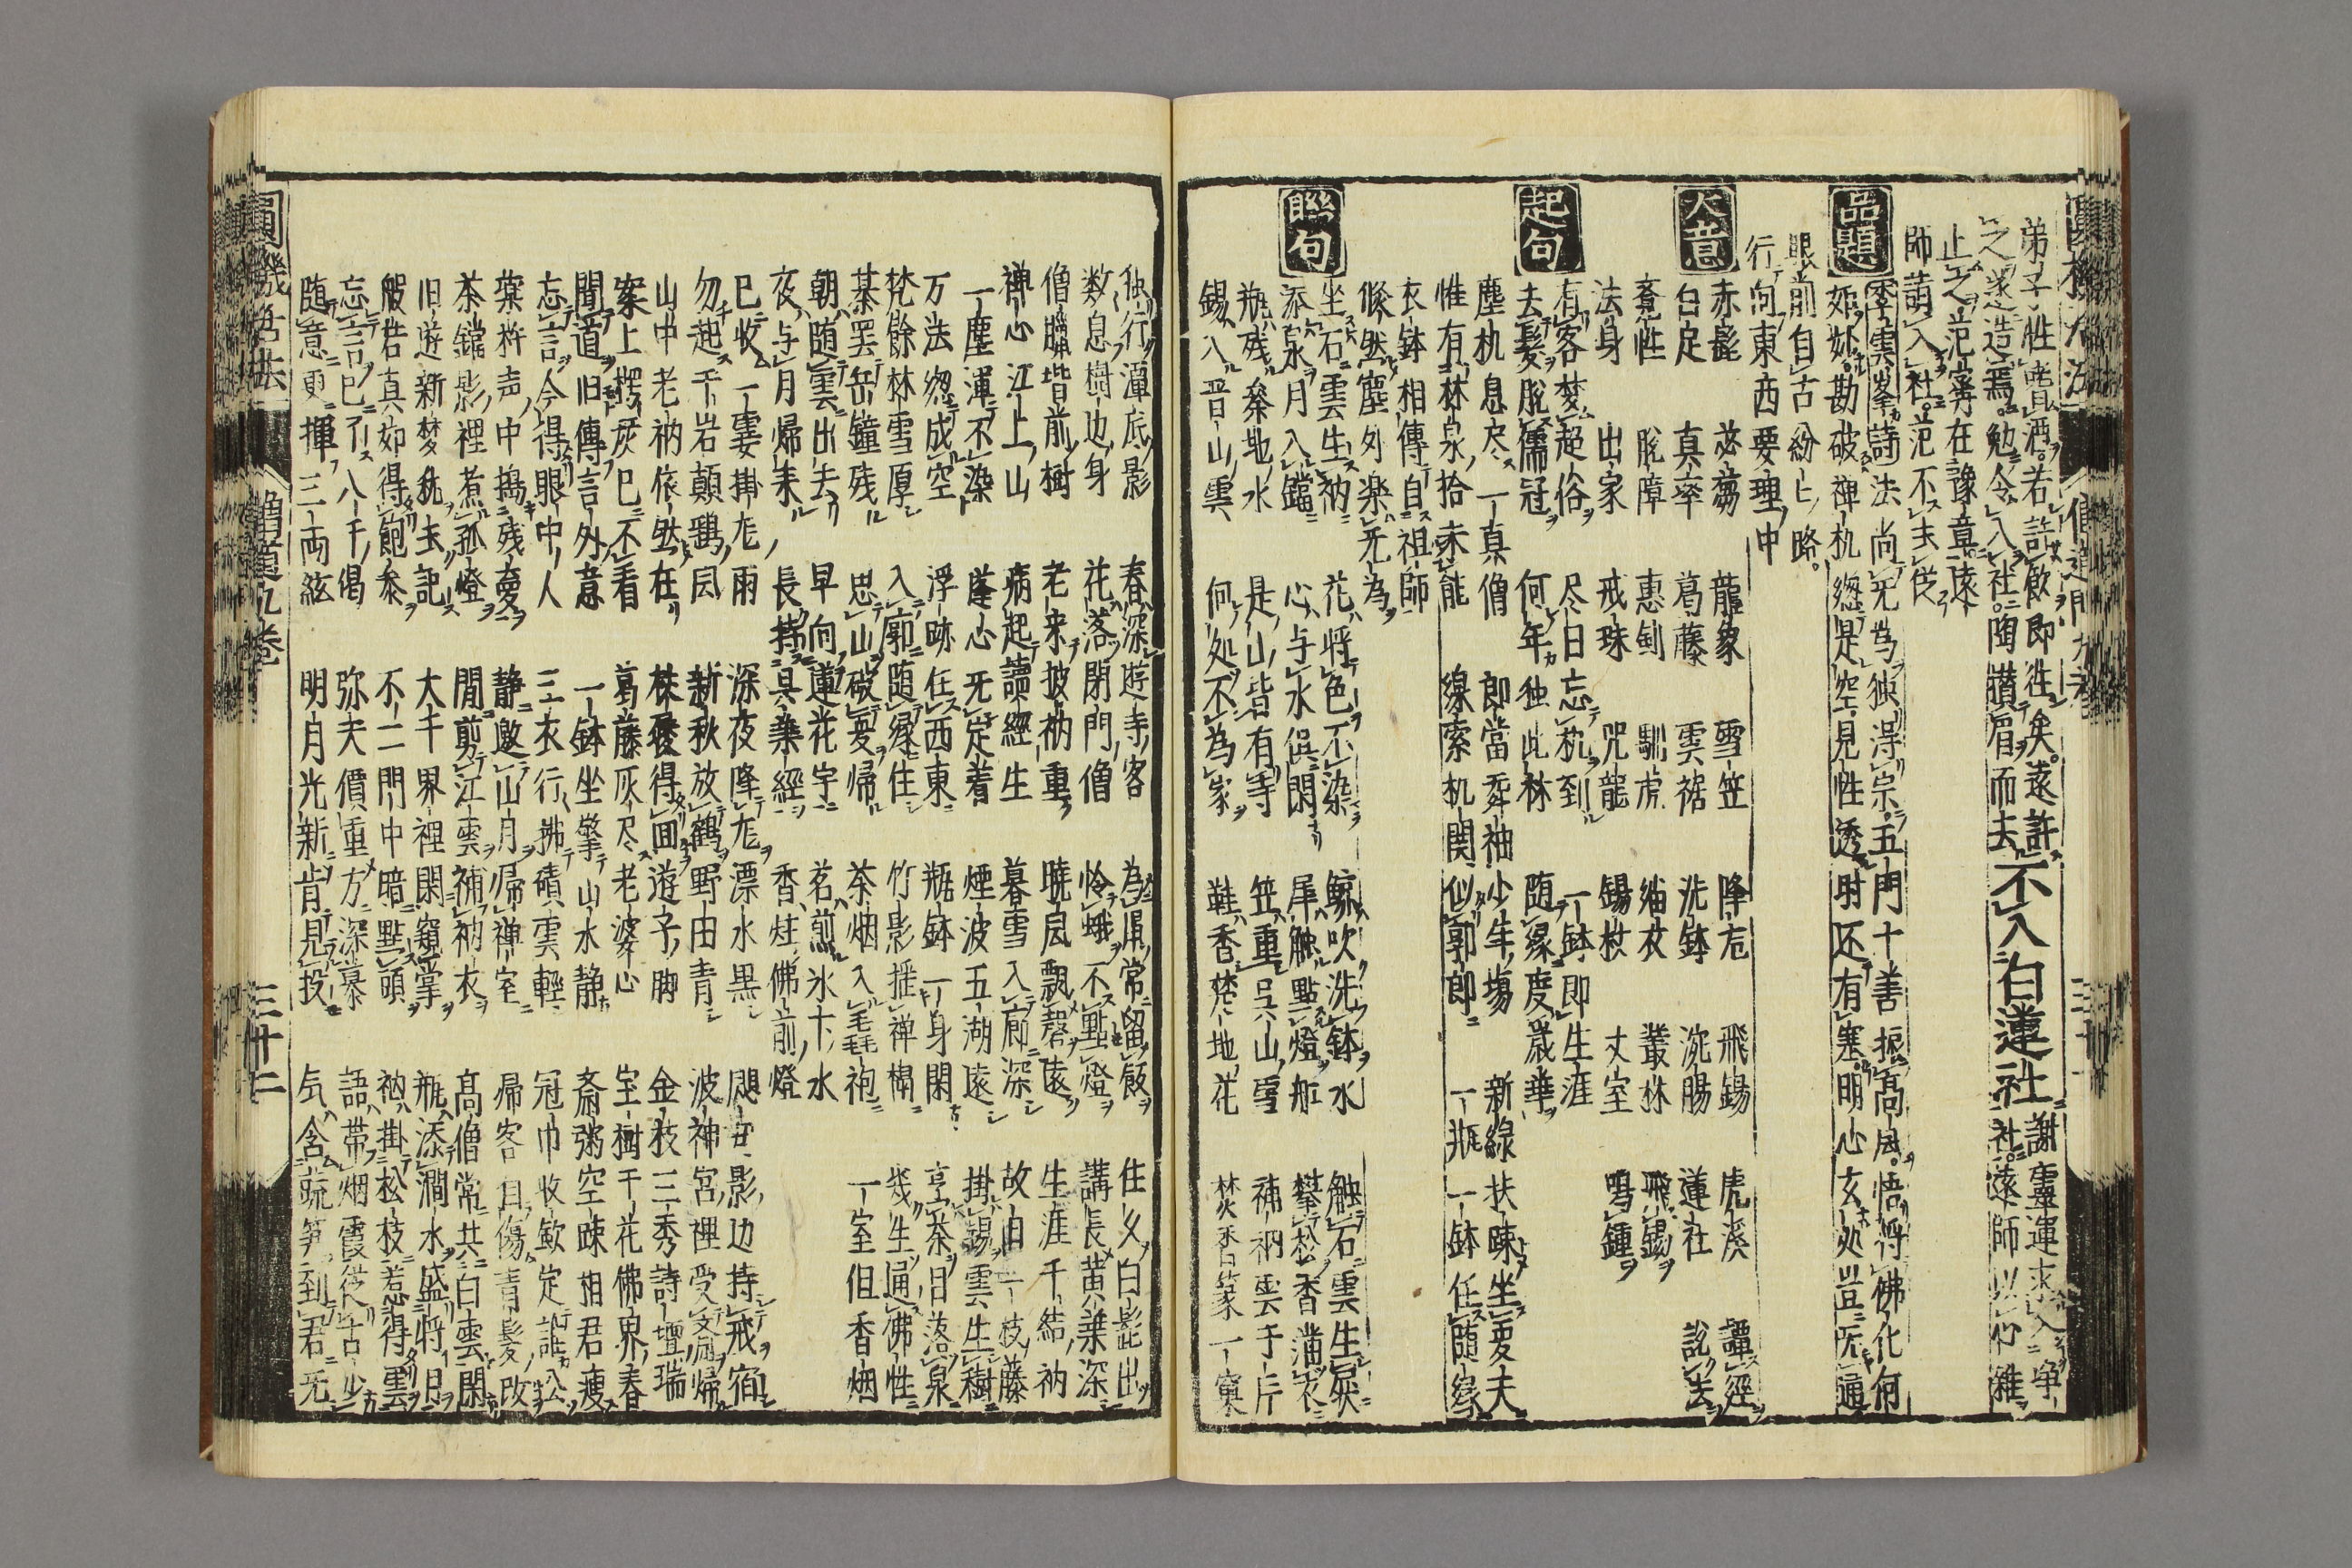 弟子性嗜酒。若許飲即徃矣。遠許
之遂造焉。勉令入社。陶攢眉而去
不入白蓮社
謝靈運求入淨
社。遠師以心雜
止之范寗在豫章遠
師請入社。范不去
品題
季雲峯詩法尚无為独得宗。五門十善振高風。悟将佛化何
如如。勘破禅机總是空見性透时还有塞。明心玄处豈无通
眼前自古紛々路。
行向東西要理中
大意
赤髭 苾蒭 龍象 雪笠 降龙 飛錫 虎溪 譚經
白足 真率 葛藤 雲裾 洗鉢 蓮社 說法
覺性 脫障 惠劍 馴虎 緇衣 叢林 飛錫
法身 出家 戒珠 咒龍 錫杖 丈室 鳴鍾
起句
有客梦超俗 尽日忘机到 一鉢即生涯
去髮脫儒冠 何年独此林 随緣度歲華
塵机息尽一真僧 即當 袖少年場 新綠扶疎坐要夫
惟有林泉拾未能 線索机関似郭郎 一瓶一鉢任随緣
衣鉢相傳自祖師
翛然塵外楽无為
聮句
坐石雲生衲 花将色不染 鯨吹洗鉢水 触石雲生屐
添泉月入鐺 心与水俱閑 犀触點燈船 攀松香滿衣
瓶残秦地水 是山皆有寺 笠重吳山雪 補衲雲千片
錫入晋山雲 何处不為家 鞋香楚地花 焚香篆一窠
独行潭底影 春深遊寺客 為 常留飯 住久白髭出
数息樹边身 花落閉門僧 怜蛾不點燈 講長黄葉深
僧臘堦前樹 老来披衲重 曉风飄磬遠 生涯千結衲
禅心江上山 病起讀經生 暮雪入廊深 故旧一枝藤
一塵渾不染 蓬心无定着 煙波五湖遠 掛錫雲生樹
万法總成空 浮跡任西東 瓶鉢一身閑 烹茶日落泉
梵餘林雪厚 入廓随緣住 竹影摇禅榻 幾生通佛性
棊罢岳鐘残 思山破夏歸 茶烟入毳袍 一室但香烟
朝随雲出去 早向蓮花宇 茗煎氷下水
夜与月歸来 長持具葉經 香炷佛前燈
已收一雲掛龙雨 深夜降龙漂水黒 影边持戒宿
勿起千岩顛鶚风 新秋放鶴野田青 波神宮裡受 歸
山中老衲依然在 林 得囬遊子脚 金枝三秀詩壇瑞
案上楞 灰已不看 葛藤灰尽老婆心 宝樹千花佛界春
聞道旧傳言外意 一鉢坐擎山水静 斎粥空疎相君瘦
忘言今得眼中人 三衣行拂磧雲輕 冠巾收歛定誰公
葉杵声中搗残夏 静邀山月帰禅室 帰客自傷青髮改
茶鐺影裡煮孤燈 閒剪江雲補衲衣 高僧常共白雲閑
旧遊新梦 去記 大千界裡閑窺掌 瓶添澗水盛将月
般若真如得飽参 不二門中暗點頭 衲掛松枝惹得雲
忘言已了八千偈 弥天價重方深慕 語帯烟霞從古少
随意更揮三両絃 明月光新肯見投 気含蔬笋到君无
圓機活法 僧道九巻 三十二